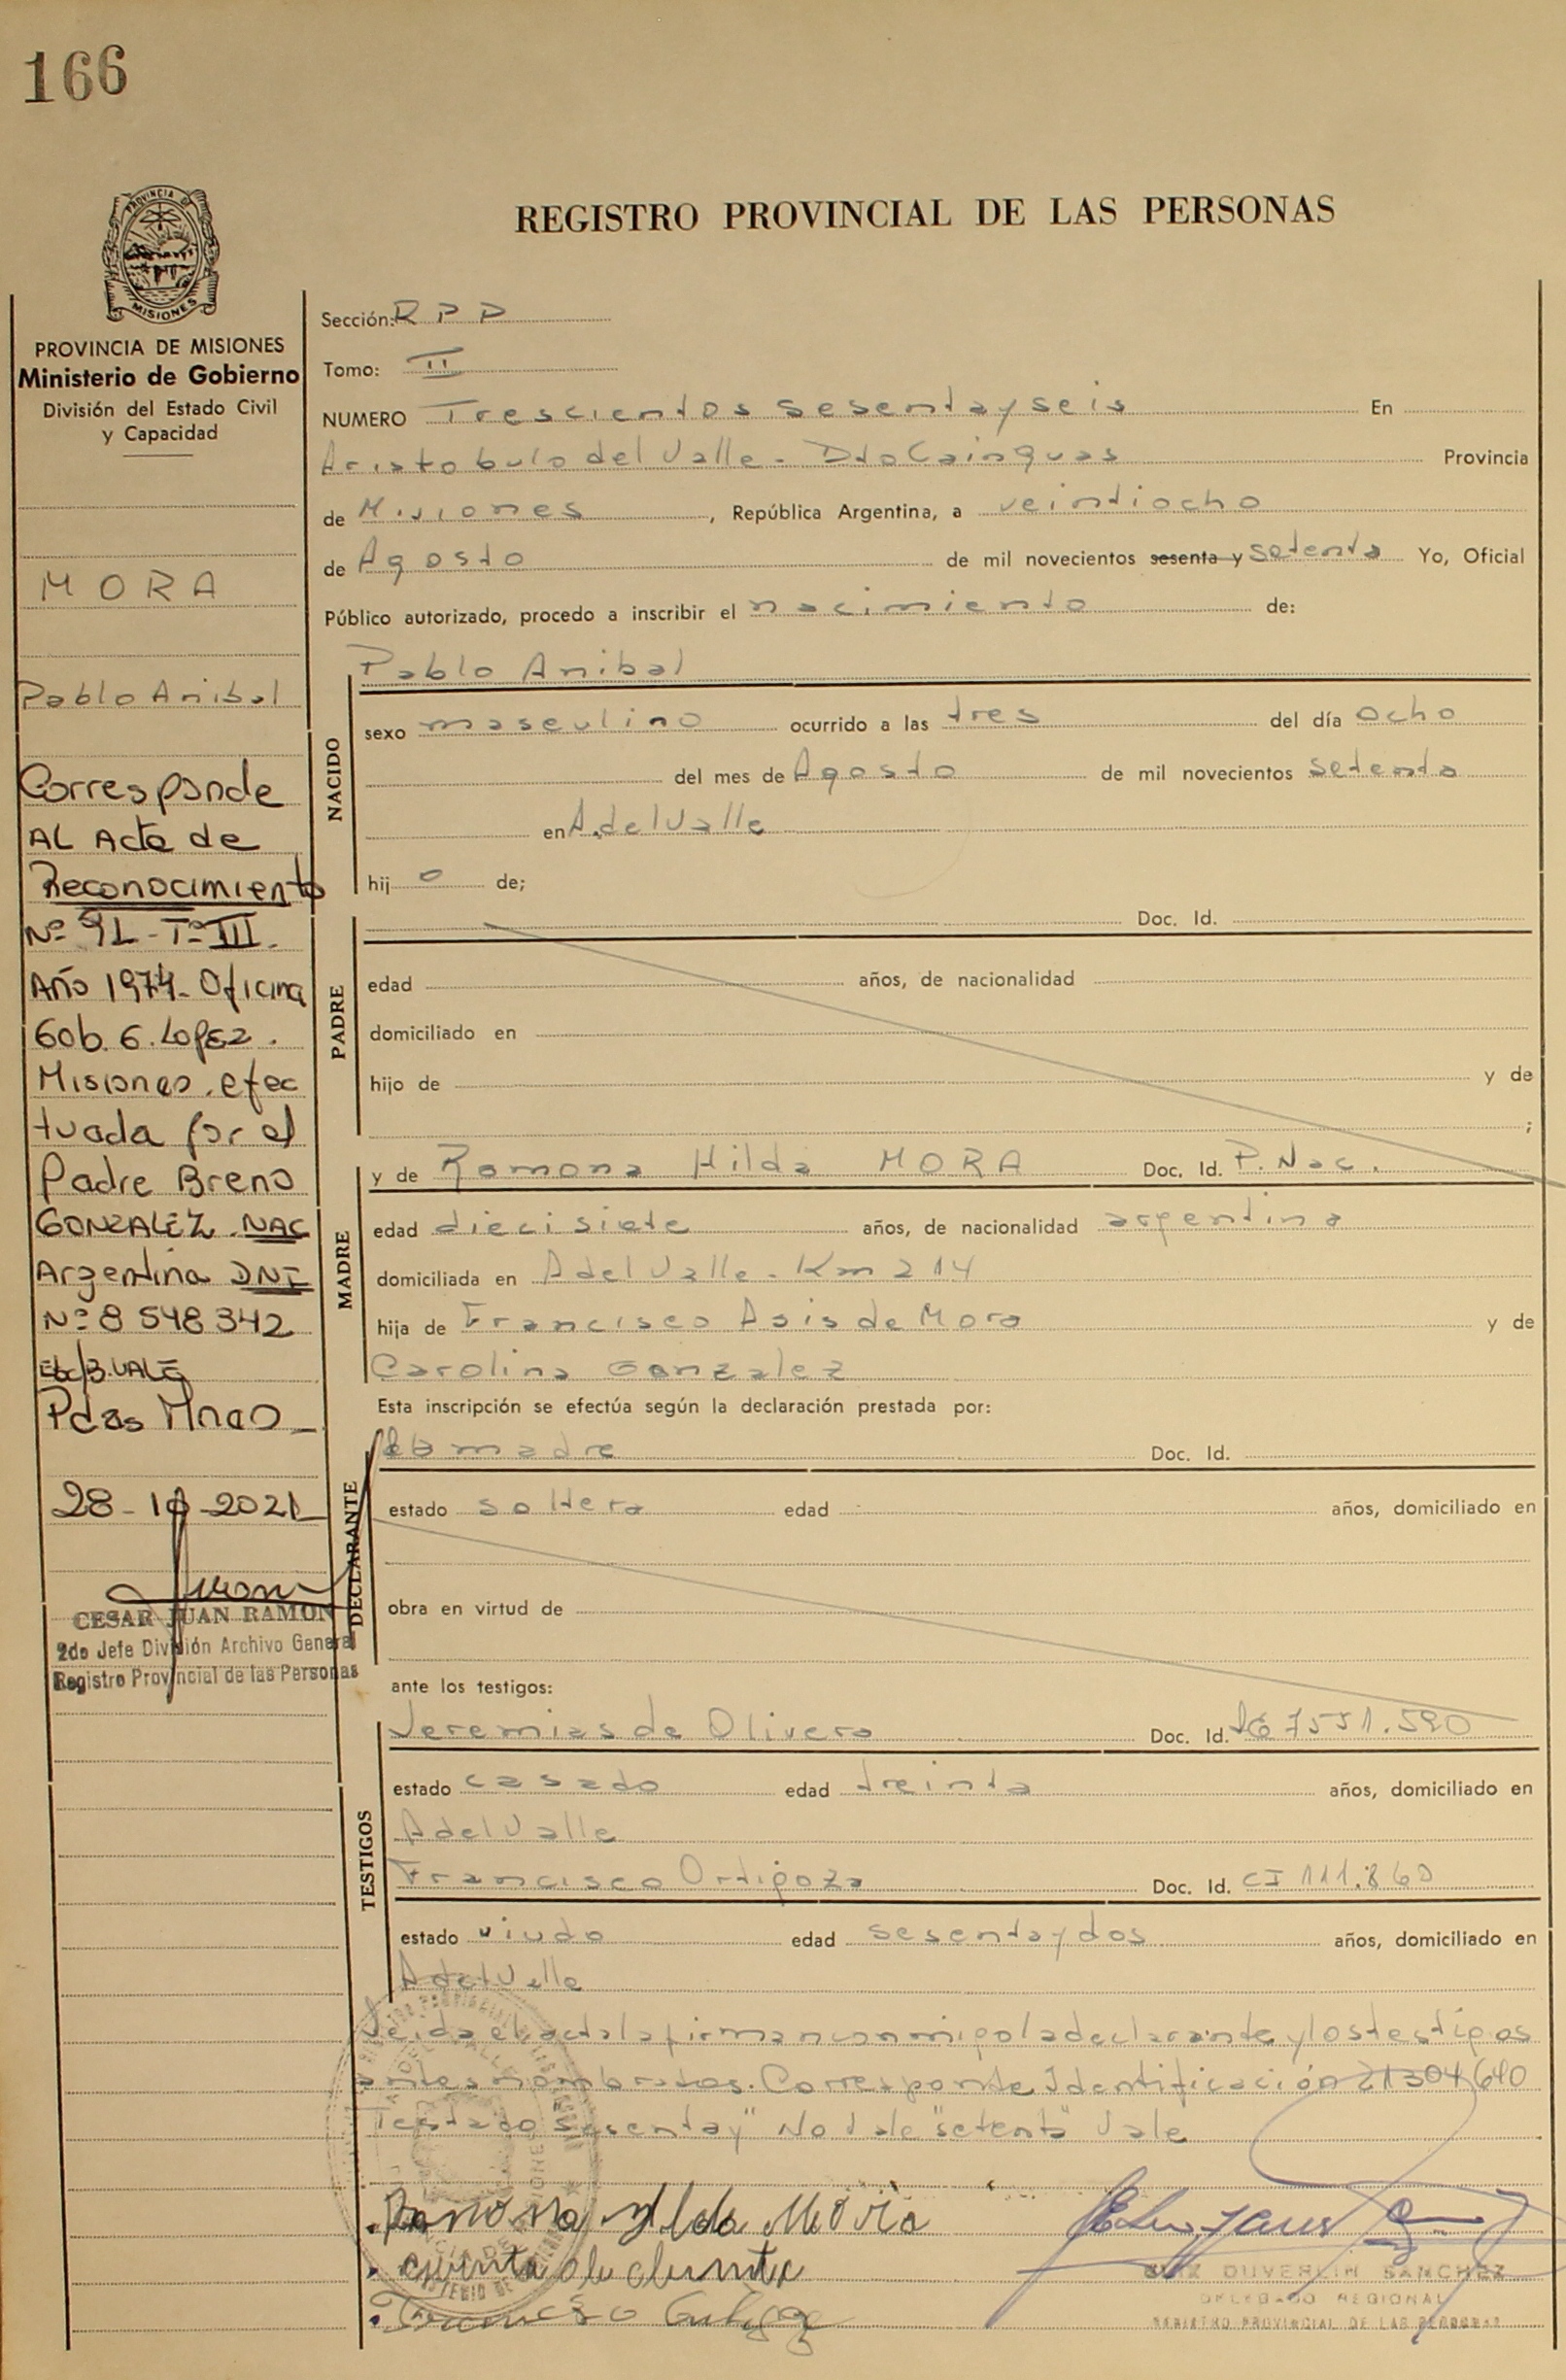 166
REGISTRO PROVINCIAL DE LAS PERSONAS
PROVINCIA DE
MISIONES
PROVINCIA DE MISIONES
Ministerio de Gobierno
División del Estado Civil
y Capacidad
MORA
Pablo Anibal
Corresponde
AL Acta de
Reconocimiento
Nº 91 - Tº III.
Año 1974 - Oficina
Gob. G. Lopez.
Misiones. efec
tuada por el
Padre Breno
GONZALEZ. NAC
Argentina DNI
Nº 8 548 342
VALE
Pdas Mnes
28-10-2021
CESAR JUAN RAMON
2do Jefe División Archivo General
Registro Provincial de las Personas
Sección: R P P
Tomo: II
NUMERO Trescientos sesenta y seis En
Aristobulo del Valle - Dto Cainguas Provincia
de Misiones, República Argentina, a veintiocho
de Agosto de mil novecientos sesenta y setenta Yo, Oficial
Público autorizado, procedo a inscribir el nacimiento de:
NACIDO
Pablo Anibal
sexo masculino ocurrido a las tres del día ocho
del mes de Agosto de mil novecientos setenta
en A. del Valle
hij o de;
PADRE
Doc. Id.
edad años, de nacionalidad
domiciliado en
hijo de y de
;
MADRE
y de Ramona Hilda MORA Doc. Id. P. Nac.
edad diecisiete años, de nacionalidad argentina
domiciliada en A del Valle - Km 214
hija de Francisco Asis de Mora y de
Carolina Gonzalez
Esta inscripción se efectúa según la declaración prestada por:
DECLARANTE
la madre Doc. Id.
estado soltera edad años, domiciliado en
obra en virtud de
ante los testigos:
TESTIGOS
Jeremias de Olivera Doc. Id. 7551.590
estado casado edad treinta años, domiciliado en
A del Valle
Francisco Ortigoza Doc. Id. CI 111.860
estado viudo edad sesenta y dos años, domiciliado en
A del Valle
Leida el acta la firman conmigo la declarante y los testigos
antes nombrados. Corresponde Identificación 21304640
Testado sesenta y" No Vale "setenta" Vale
Ramona Ilda Mora
Francisco
DUVERLIN SANCHEZ
DELEGADO REGIONAL
REGISTRO PROVINCIAL DE LAS PERSONAS